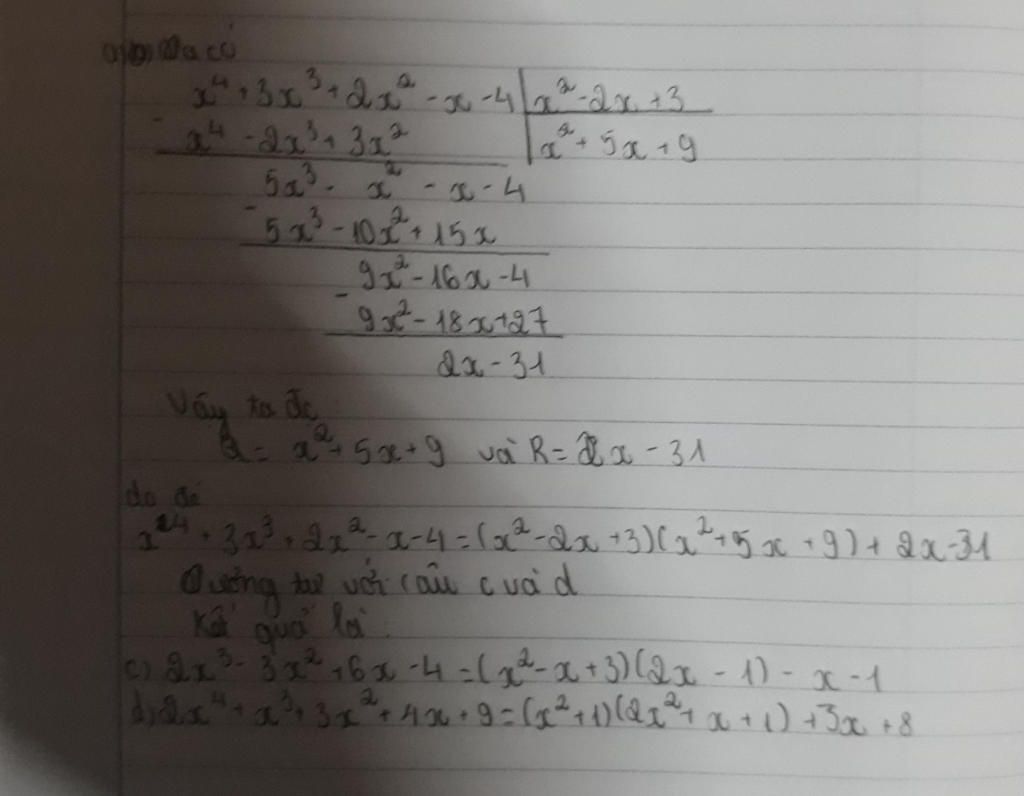 Ta có
x⁴ + 3x³ + 2x² - x - 4 | x² - 2x + 3
- x⁴ - 2x³ + 3x² | x² + 5x + 9
5x³ - x² - x - 4
- 5x³ - 10x² + 15x
9x² - 16x - 4
- 9x² - 18x + 27
2x - 31
Vậy ta đc
Q = x² + 5x + 9 và R = 2x - 31
do đó
x⁴ + 3x³ + 2x² - x - 4 = (x² - 2x + 3)(x² + 5x + 9) + 2x - 31
Tương tự với câu c và d
Kết quả là:
c) 2x³ - 3x² + 6x - 4 = (x² - x + 3)(2x - 1) - x - 1
d) 2x⁴ + x³ + 3x² + 4x + 9 = (x² + 1)(2x² + x + 1) + 3x + 8